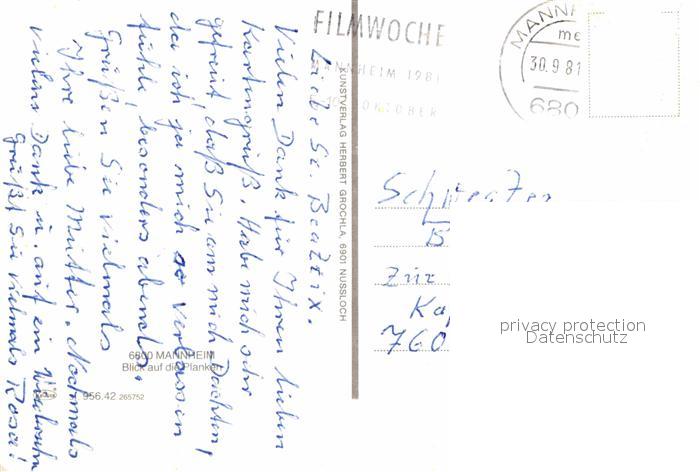 FILMWOCHE
MANNHEIM 1981
OKTOBER
MANNH
me
30.9.81
680
Liebe Sr. Beatrix.
Vielen Dank für Ihren lieben
Kartengruß. Habe mich sehr
gefreut, daß Sie an mich dachten,
da ich ja mich so verlassen
fühle, besonders abends.
Grüßen Sie vielmals
Ihre liebe Mutter. Nochmals
vielen Dank u. auf ein
Grüßt Sie vielmals Rosa!
KUNSTVERLAG HERBERT GROCHLA, 6901 NUSSLOCH
6800 MANNHEIM
Blick auf die Planken
956.42 265752
Schwester
B
Zur
Ka
760
privacy protection
Datenschutz